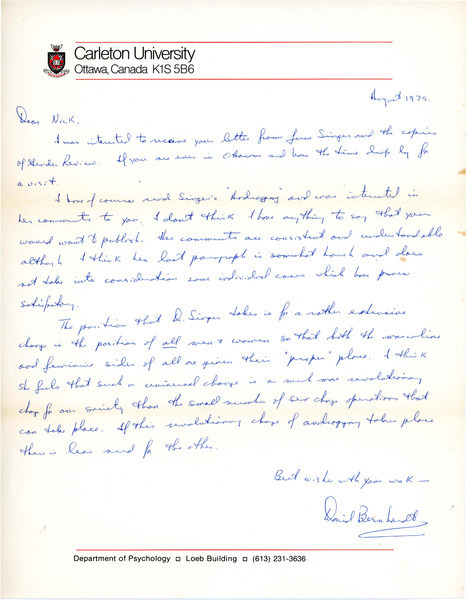 Carleton University
Ottawa, Canada K1S 5B6
August 1979.
Dear Nick,
I was interested to receive your letter from June Singer and the copies
of Gender Review. If you are ever in Ottawa and have the time drop by for
a visit.
I have of course read Singer's "Androgyny" and was interested in
her comments to you. I don't think I have anything to say that you
would want to publish. Her comments are consistent and understandable
although I think her last paragraph is somewhat harsh and does
not take into consideration some individual cases which have proven
satisfactory.
The position that Dr. Singer takes is for a rather extensive
change in the position of all men & women so that both the masculine
and feminine sides of all are given their "proper" place. I think
she feels that such a universal change is a much more revolutionary
change for our society than the small number of sex change operations that
can take place. If this revolutionary change of androgyny takes place
there is less need for the other.
Best wishes with your work —
David Bernhardt
Department of Psychology □ Loeb Building □ (613) 231-3636